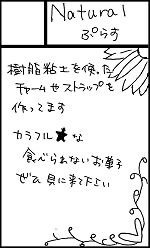 Natural
ぷらす
樹脂粘土を使った
チャームやストラップを
作ってます
カラフル★な
食べられないお菓子
ぜひ見に来て下さい